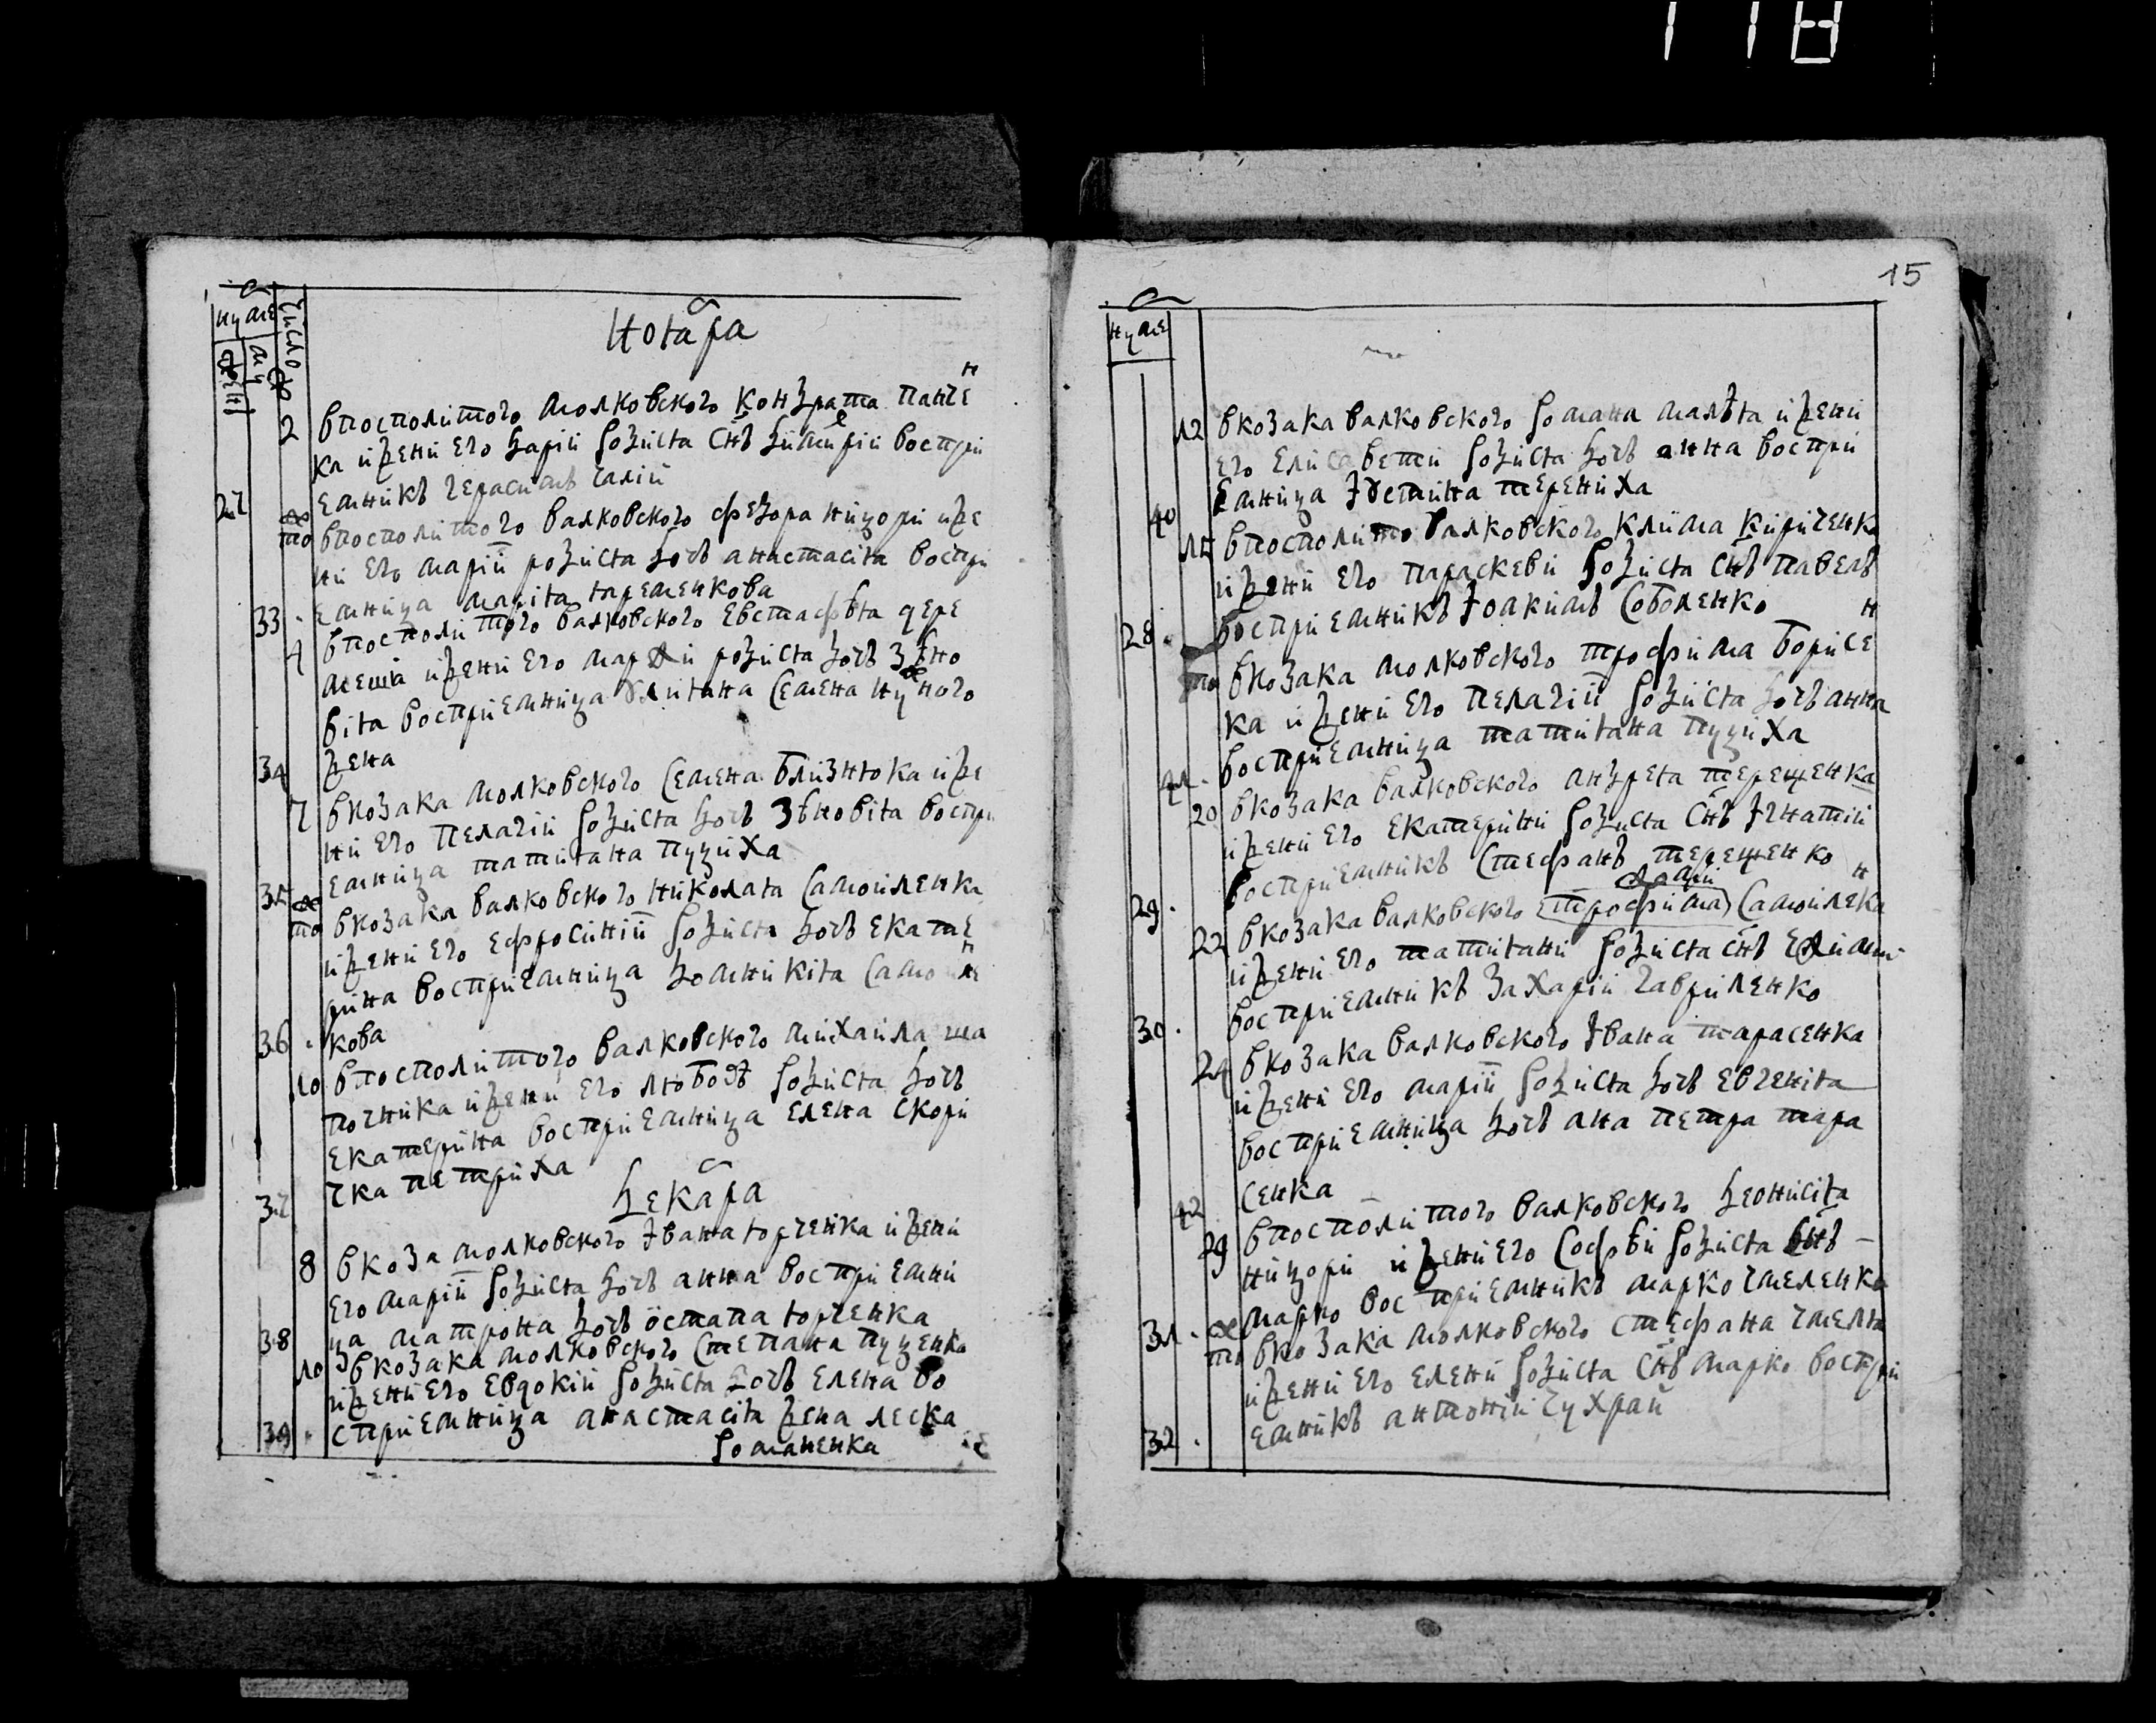 118
Ноıабра
Число
2 впосполитого молковского кондрата панчен
ка ижени его дарїи родиста снъ димитрїи воспри
27 емникъ герасимъ галїй
то впосполитого валковского федора ницори иже
ни его марїи родиста дочъ анастасıа воспри
33 емница марıа ıаременкова
4 впосполитого валковского евстафѣıа чере
меша ижени его марѳи родиста дочъ зѣно
вıа восприемница ѹлııана семена нужного
34 жена
7 вкозака молковского семена близнюка иже
ни его пелагїи родиста дочъ зѣновıа воспри
35 емница татıана пуциха
то вкозака валковского николаıа самойленка
ижени его ефросинїи родиста дочъ екате
рина восприемница домникıа самойлен
36 кова
10 впосполитого валковского михаила ша
почника ижени его любовѣ родиста дочъ
екатерина восприемница елена скори
37 чка петриха
Декабра
8 вкоза молковского ївана горченка ижени
его марїи родиста дочъ анна восприемни
38 ца матрона дочъ остапа горченка
10 вкозака молковского степана пуценко
ижени его евдокїи родиста дочъ елена во
39 сприемница анастасıа жена леска
романенка
15
12 вкозака валковского романа малѣıа ижени
его елисавети родиста дочъ анна воспри
40 емница їѹстина терениха
15 впосполито валковского клима кириченка
ижени его параскеви родиста снъ павелъ
28 восприемникъ їоакимъ соболенко
то вкозака молковского трофима борисен
ка ижени его пелагїи родиста дочъ анна
41 восприемница татıана пуциха
20 вкозака валковского андреıа терещенка
ижени его екатерини родиста снъ їгнатїй
29 восприемникъ стефанъ терещенко
22 вкозака валковского трофима самойленка
ижени его татıани родиста снъ
30 восприемникъ захарїи гавриленко
24 вкозака валковского ївана тарасенка
ижени его марїи родиста дочъ евгенıа
восприемница дочъ ана петра тара
42 сенка
29 впосполитого валковского деонисıа
ницори ижени его софѣи родиста снъ
31 марко восприемникъ марко гмеленко
то вкозака молковского стефана гмелıа
ижени его елени родиста снъ марко воспри
32 емникъ антонїй чухрай